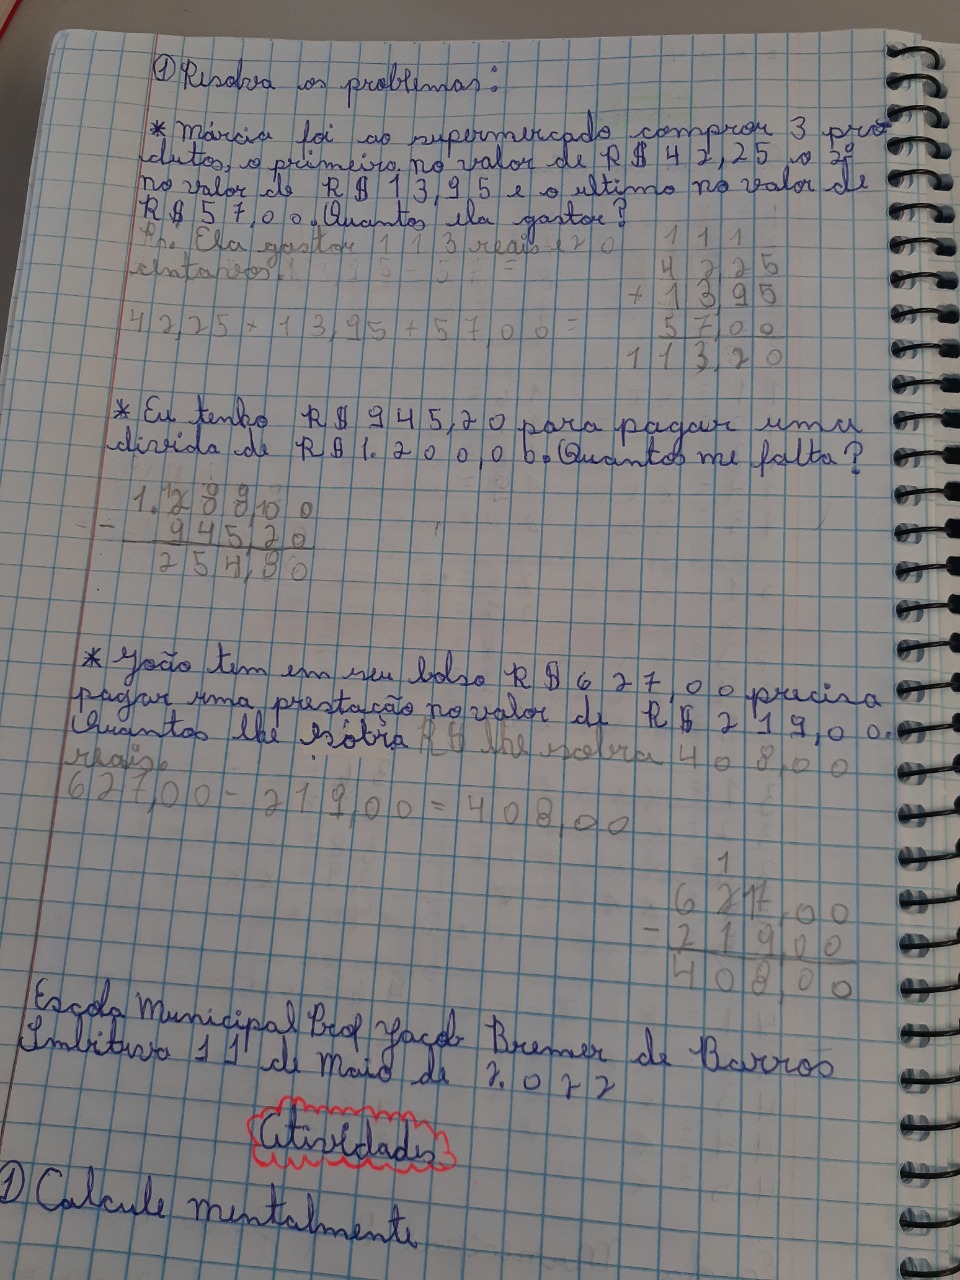 ① Resolva os problemas:
* Márcia foi ao supermercado comprar 3 pro
dutos, o primeiro no valor de R$ 42,25 o 2º
no valor de R$ 13,95 e o ultimo no valor de
R$ 57,00. Quantos ela gastor?
Rp. Ela gastor 113 reais e 20
centavos.
111
4225
+ 1395
42,25 + 13,95 + 57,00 =
57,00
113,20
* Eu tenho R$ 945,20 para pagar uma
divida de R$ 1.200,00. Quantos me falta?
- 945,20
254,80
* João tem em seu bolso R$ 627,00 precisa
pagar uma prestação no valor de R$ 219,00.
Quantos lhe sóbra R$ lhe sobra 408,00
reais.
627,00 - 219,00 = 408,00
1
6217,00
- 219,00
408,00
Escola Municipal Prof Yacob Bremer de Barros
Imbituva 11 de Maio de 2.022
Atividades
1) Calcule mentalmente